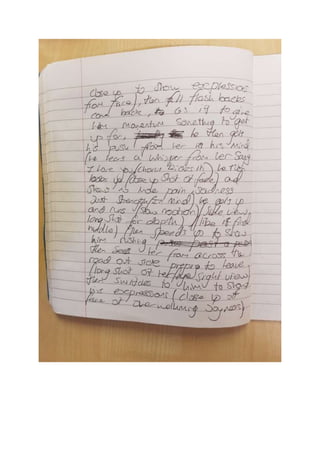 close up to show expression
from face), then all flash backs
come back, as if to give
him momentum something to get
up for. he then gets
his push from her in his mind
(he hears a whisper from her say
I love you) he then
looks up (close up shot of face) and
shows no more pain, soreness
Just strength (in mind) he gets up
and runs (slow motion) (side view,
long shot for depth) (like it first
middle) then speeds up to show
him rushing
then sees her from across the
road out side preparing to leave
(long shot of her right view)
then switches to him to show
his expressions (close up of
face of overwhelming Joyness)